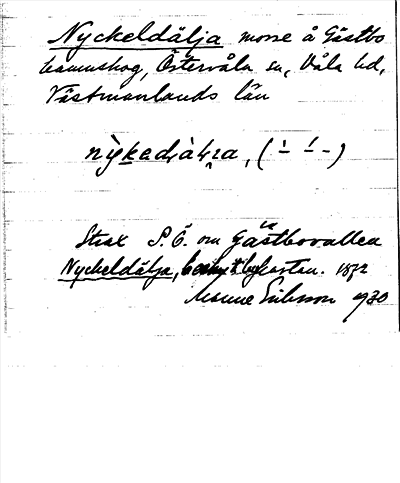 Nyckeldälja mosse å Gästbo
hammskog, Östervåla sn, Våla hd,
Västmanlands län
Strax S.Ö. om Gästbovallen
Nyckeldälja, kartan. 1872
Manne Eriksson 1930